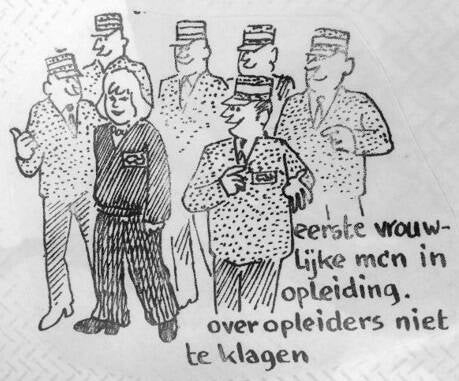 eerste vrouw-
lijke mc'n in
opleiding.
over opleiders niet
te klagen